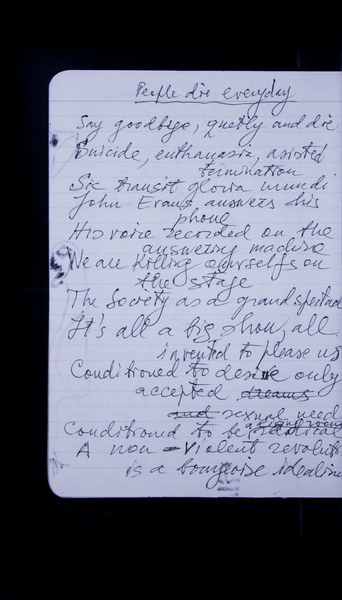 People die everyday
Say goodbye, quetly and die
Suicide, enthanasia, asisted
termination
Sic transit gloria mundi
John Evans, answers his
phone
His voice recorded on the
answering machine
We are killing ourselfs on
the stage
The Society as a grand spectac
It's all a big show, all
invented to please us
Conditioned to desire only
accepted dreams
and sexual need
Conditioned to be
A non-Violent revoluti
is a bourgoise idealism